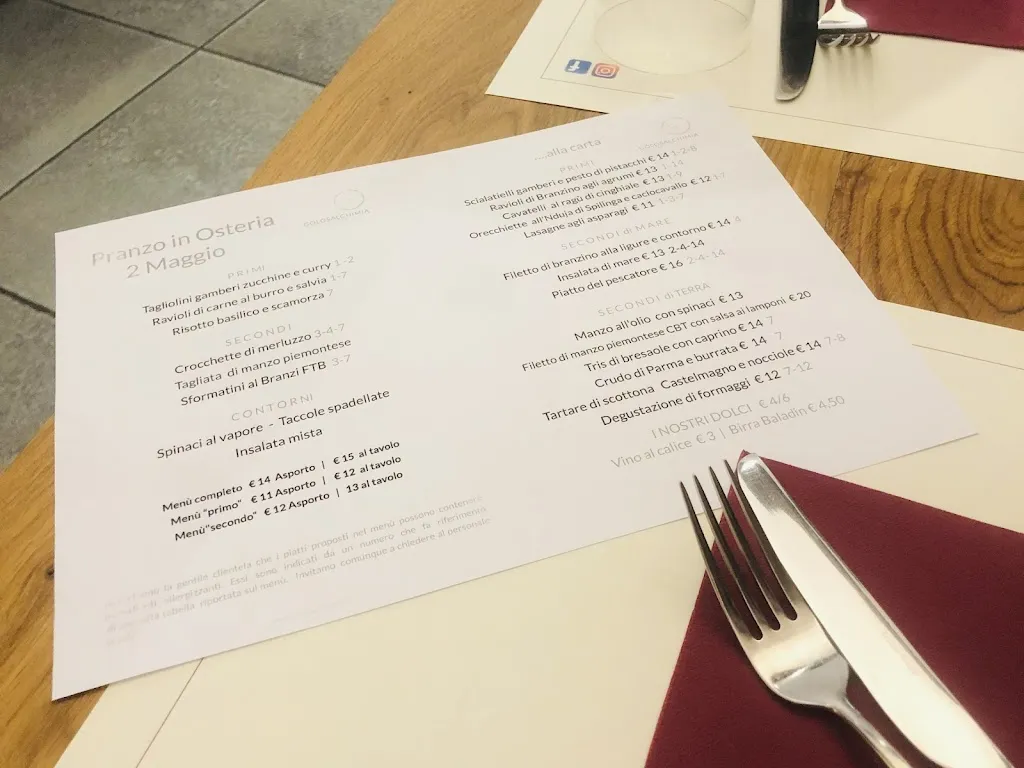 Pranzo in Osteria
2 Maggio
GOLOSALCHIMIA
PRIMI
Tagliolini gamberi zucchine e curry 1-2
Ravioli di carne al burro e salvia 1-7
Risotto basilico e scamorza 7
SECONDI
Crocchette di merluzzo 3-4-7
Tagliata di manzo piemontese
Sformatini al Branzi FTB 3-7
CONTORNI
Spinaci al vapore - Taccole spadellate
Insalata mista
Menù completo € 14 Asporto | € 15 al tavolo
Menù "primo" € 11 Asporto | € 12 al tavolo
Menù "secondo" € 12 Asporto | 13 al tavolo
la gentile clientela che i piatti proposti nel menù possono contenere
allergizzanti. Essi sono indicati da un numero che fa riferimento
tabella riportata sul menù. Invitiamo comunque a chiedere al personale
...alla carta
GOLOSALCHIMIA
PRIMI
Scialatielli gamberi e pesto di pistacchi € 14 1-2-8
Ravioli di Branzino agli agrumi € 13 14
Cavatelli al ragù di cinghiale € 13 1-9
Orecchiette all'Nduja di Spilinga e caciocavallo € 12 1-7
Lasagne agli asparagi € 11 1-3-7
SECONDI di MARE
Filetto di branzino alla ligure e contorno € 14 4
Insalata di mare € 13 2-4-14
Piatto del pescatore € 16 2-4-14
SECONDI di TERRA
Manzo all'olio con spinaci € 13
Filetto di manzo piemontese CBT con salsa ai lamponi € 20
Tris di bresaole con caprino € 14 7
Crudo di Parma e burrata € 14 7
Tartare di scottona Castelmagno e nocciole € 14 7-8
Degustazione di formaggi € 12 7-12
I NOSTRI DOLCI € 4/6
Vino al calice € 3 | Birra Baladin € 4,50